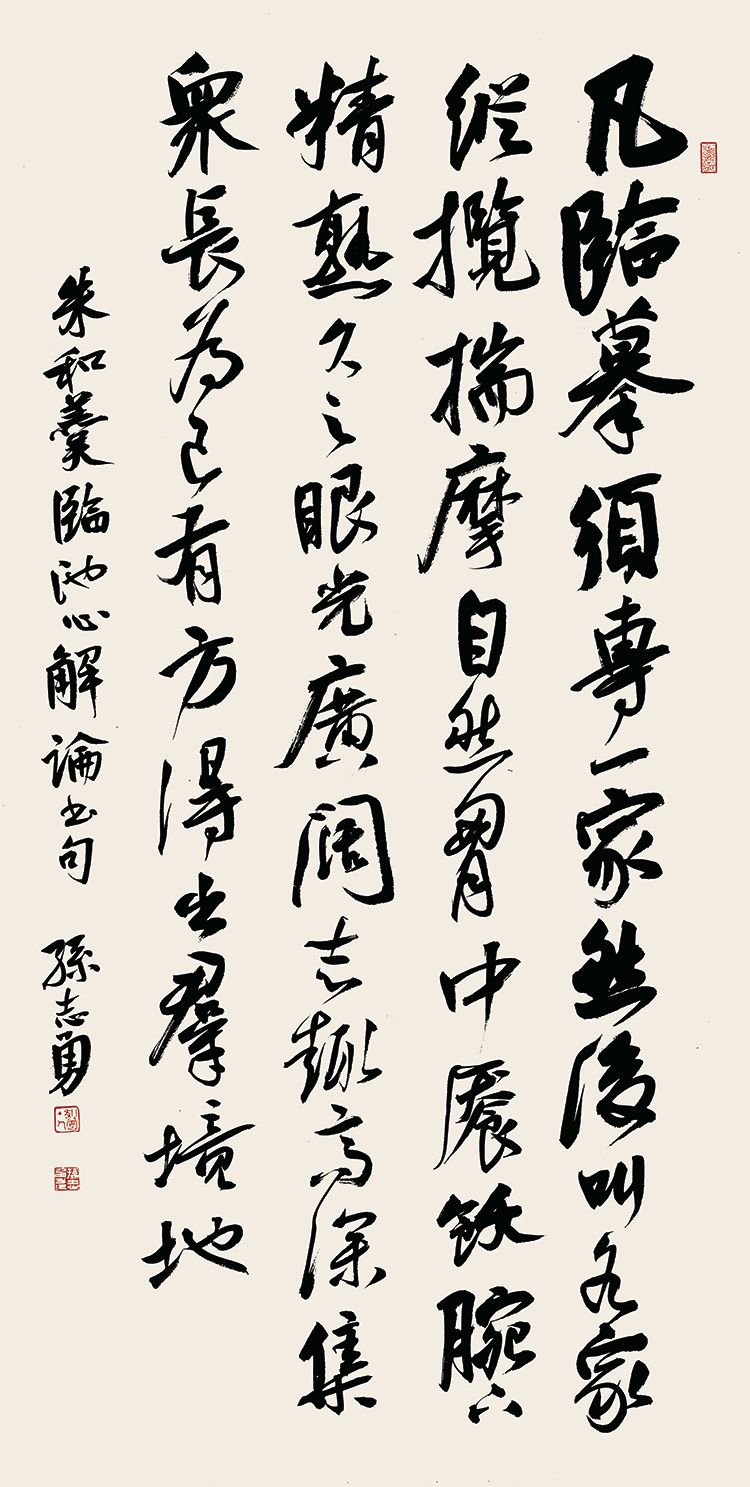 凡臨摹須專一家然後以各家
縱攬揣摩自然胷中饜飫腕下
精熟久之眼光廣闊志趣高深集
衆長為己有方得出羣境地
朱和羹臨池心解論書句 孫志勇